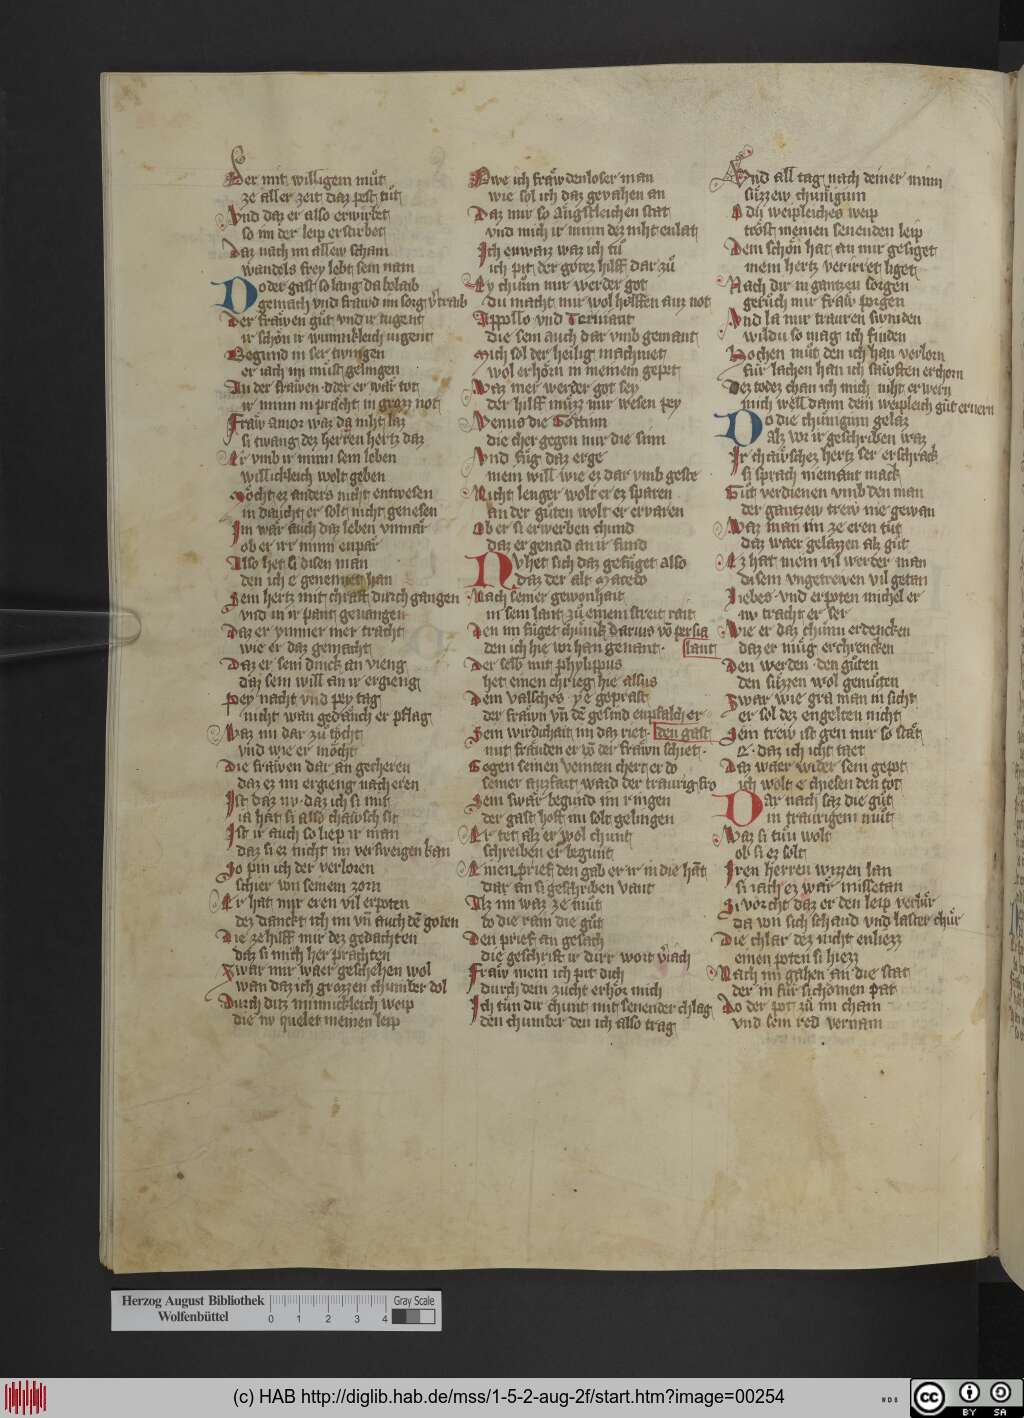 Der mit willigem mu͂t
ze aller zeit daz pest tůt
Vnd daz er also erwirbet
so im der leip erstirbet
Daz nach im allew scham
wandels frey lebt sein nam
Do der gast so lang da belaib
gemach vnd frawd im sorg v̓traib
Der frawen gůt vnd ir tugent
ir schön ir wunnikleich iugent
Begund in ser twingen
er iach im müst gelingen
An der frawen oder er wär tot
ir minn in pracht in grozz not
Fraw amor waz da niht laz
si twang dez herren hertz daz
Er vmb ir minn sein leben
willickleich wolt geben
Möcht ez anders nicht entwesen
in daucht er solt nicht genesen
Im wär auch daz leben vnmär
ob er ir minn enpär
Also het si disen man
den ich e genennet han
Sein hertz mit chraft durch gangen
vnd in ir pant geuangen
Daz er ymmer mer tracht
wie er daz gemacht
Daz er seni dinck an vieng
daz sein will an ir ergieng
Pey nacht vnd pey tag
nicht wan gedanch er pflag
Waz im dar zů töcht
vnd wie er möcht
Die frawen dar an gecheren
daz ez im ergieng nach eren
Ist daz nv daz ich si mit
ia hat si also chäwsch sit
Ist ir auch so liep ir man
daz si ez nicht im versweigen kan
So pin ich der verloren
schier von seinem zorn
Er hat mir eren vil erpoten
dez danckt ich im vn̄ auch dē goten
Die ze hilff mir dez gedachten
daz si mich her prachten
Zwar mir waer geschehen wol
wan daz ich grozzen chumber dol
Durch ditz minnickleich weip
die nv quelet meinen leip
Owe ich frawdenloser man
wie sol ich daz gevahen an
Daz mir so angstleichen stat
vnd mich ir minn dez niht enlat
Ich enwaiz waz ich tů
ich pit der götez hilff dar zů
Ey chům mir werder got
du macht mir wol helffen auz not
Appollo vnd Termant
die sein auch dar vmb gemant
Mich sol der heilig machmet
wol erhörn in meinem gepet
Waz mer werder got sey
der hilff müzz mir wesen pey
Venus die Göttinn
die cher gegen mir die sinn
Vnd füg daz erge
mein will wie ez dar vmb geste
Nicht lenger wolt er ez sparen
an der gůten wolt er ervaren
Ob er si erwerben chund
daz er genad an ir fund
Nv het sich daz gefüget also
daz der alt Macedo
Nach seiner gewonhait
in sein lant zů einem streit rait
Den im füget chünik Darius vō persia
den ich hie vor han genant. lant
Der selb mit phylippus
het einen chrieg hie alsus
Dem valsches ye geprast
der frawn vn̄ dē gesind enpfalch er
Sein wirdichait im daz riet. den gast
mit fräuden er vō der frawn schiet.
Gegen seinen veinten chert er do
seiner auzfart ward der traurig fro
Sein swär begund im ringen
der gast hoft im solt gelingen
Er tet alz er wol chunt
schreiben er begunt
Einen prief den gab er ir in die hāt
dar an si geschriben vant
Alz im waz ze mut
do die rain die gůt
Den prief an gesach
die geschrift ir dirr wort v̓iach
Fraw mein ich pit dich
durch dein zucht erhör mich
Ich tün dir chunt mit senender chlag
den chumber den ich also trag
Vnd all tag nach deiner minn
süzzew chünigũn
O du weipleiches weip
tröst meinen senenden leip
Dein schön hat an mir gesiget
mein hertz verirret liget
Nach dir in gantzen sorgen
geruch mir fraw porgen
Vnd la mir trauren swinden
wildu so mag ich finden
Hochen můt den ich han verlorn
für lachen han ich säwften erchorn
Dez todez chan ich mich niht erwern
mich well dann dein weipleich gůt ernern
Do die chüniginn gelaz
alz vor ir geschriben waz
Ir chawschez hertz ser erschrack
si sprach niemant mack
Gůt verdienen vmb den man
der gantzew trew nie gewan
Waz man im ze eren tůt
daz waer gelazzen alz gůt
Ez hat mein vil werder man
disem vngetrewen vil getan
Liebes vnd erpoten michel er
nv tracht er ser
Wie er daz chünn erdencken
daz er müg erchrencken
Den werden den gůten
den süzzen wol gemůten
Zwar wie gra man in sicht
er sol dez engelten nicht
Sein trew ist gen mir so stät
E daz ich icht taet
Daz waer wider sein gepot
ich wolt e chiesen den tot
Dar nach saz die gůt
in traurigem můt
Waz si tůn wolt
ob si ez solt
Iren herren wizzen lan
si iach ez wär missetan
Si vorcht daz er den leip verlür
da von sich schand vnd laster chür
Die chlar dez nicht enliezz
einen poten si hiezz
Nach im gahen an die stat
der in für si chomen pat
Do der pot zů im cham
vnd sein red vernam
Herzog August Bibliothek
Wolfenbüttel
0 1 2 3 4
Gray Scale
(c) HAB http://diglib.hab.de/mss/1-5-2-aug-2f/start.htm?image=00254
WDB
cc BY SA